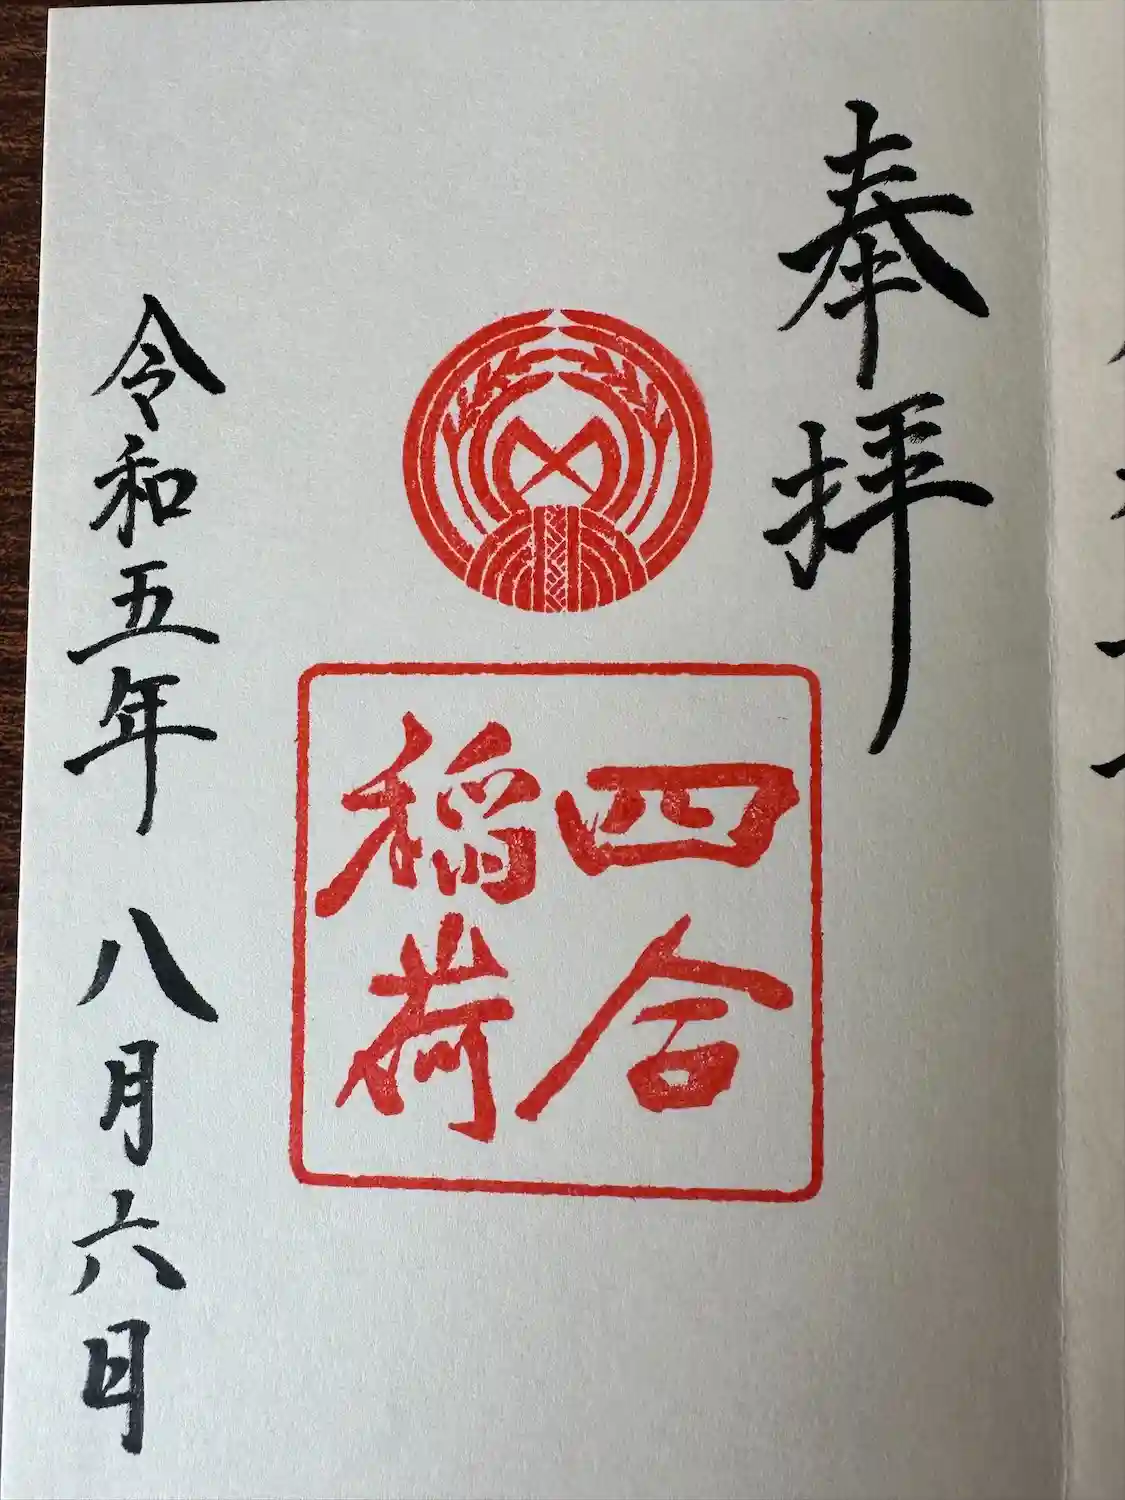 奉拝
四合
稲荷
令和五年八月六日